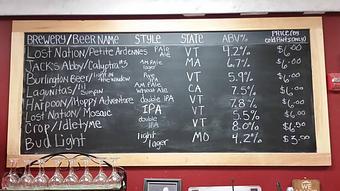 BREWERY/BEER NAME STYLE STATE ABV% PRICE(IMP COLD PINTS ONLY)
Lost Nation/Petite Ardennes Pale Ale VT 4.2% $6.00
Jack's Abby/Calyptra AM Pale lager MA 6.7% $6.00
Burlington Beer/Light in the Window Rye VT 5.9% $6.00
Lagunitas/Lil Sumpin AM Pale Wheat Ale CA 7.5% $6.00
Harpoon/Hoppy Adventure double IPA VT 7.8% $6.00
Lost Nation/Mosaic IPA VT 5.5% $6.00
Crop/Idletyme double IPA VT 8.0% $6.50
Bud Light light lager MO 4.2% $3.00